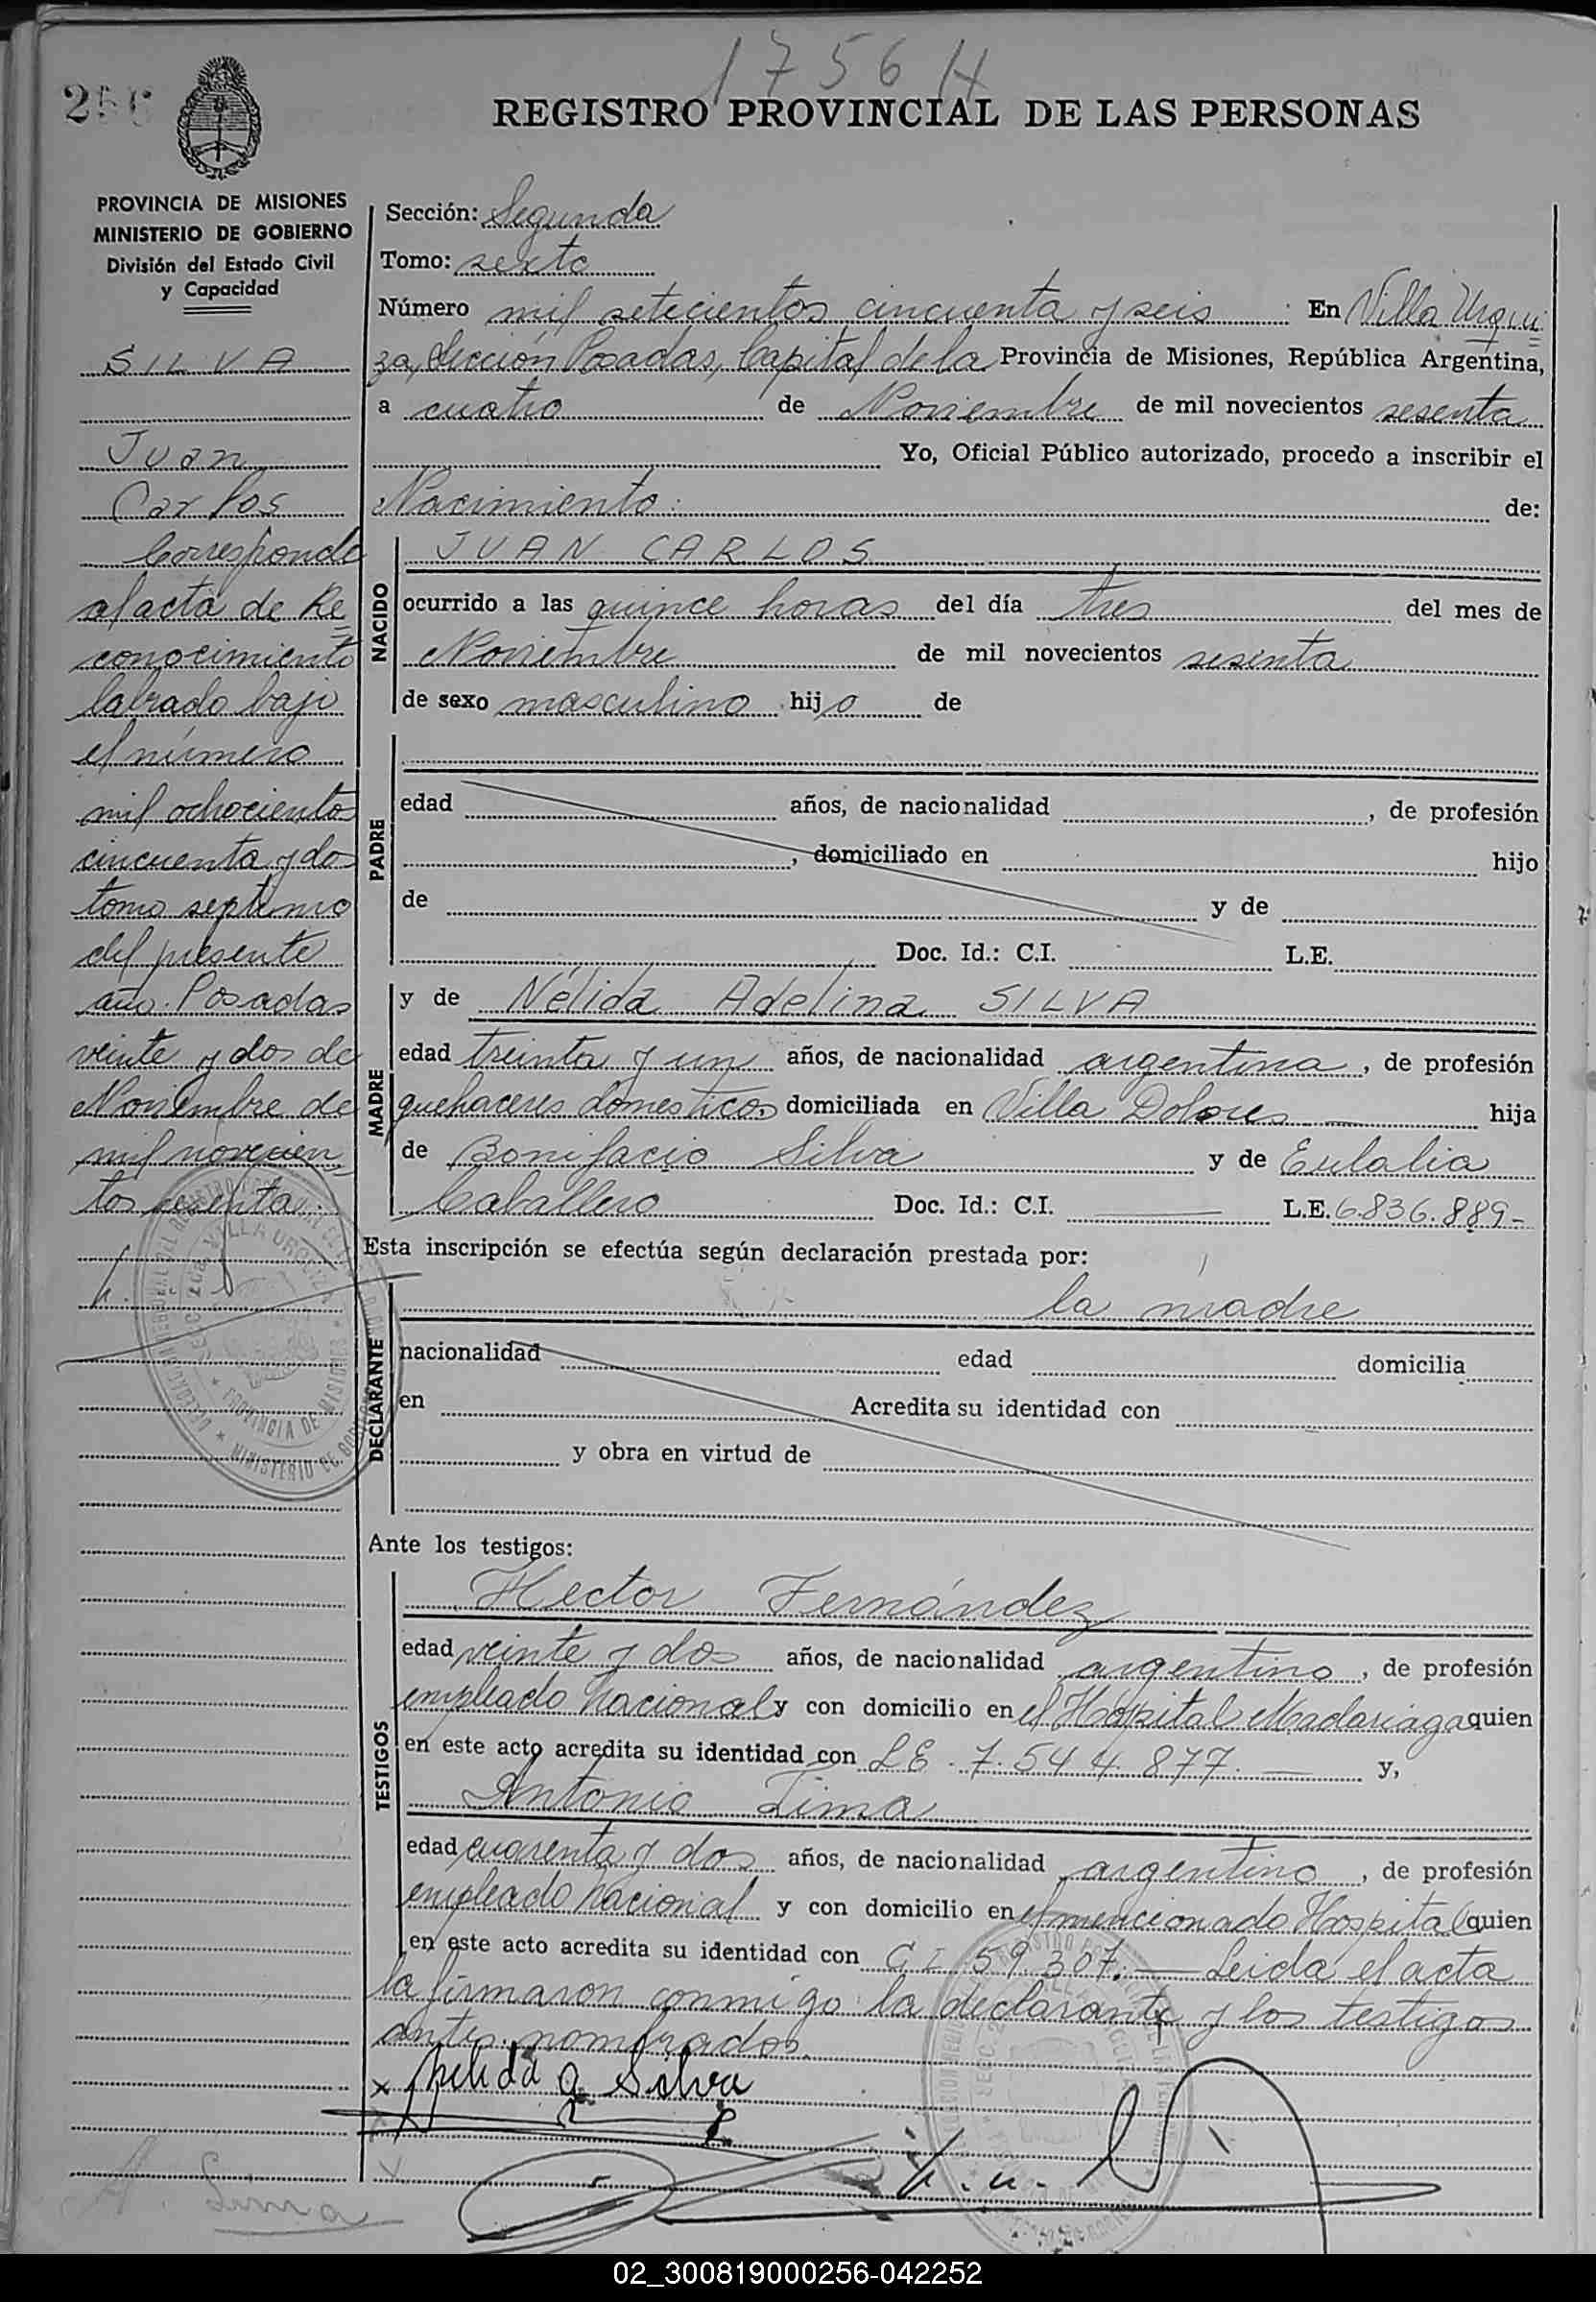 1756 H
REGISTRO PROVINCIAL DE LAS PERSONAS
PROVINCIA DE MISIONES
MINISTERIO DE GOBIERNO
División del Estado Civil
y Capacidad
SILVA
Juan
Carlos
Corresponde
al acta de Re
conocimiento
labrado bajo
el número
mil ochociento
cincuenta y do
tomo septimo
del presente
año. Posadas
veinte y dos de
Noviembre de
mil novecien
tos sesenta.
Sección: Segunda
Tomo: sexto
Número mil setecientos cincuenta y seis En Villa Urqui
za, Sección Posadas, Capital de la Provincia de Misiones, República Argentina,
a cuatro de Noviembre de mil novecientos sesenta
Yo, Oficial Público autorizado, procedo a inscribir el
Nacimiento: de:
NACIDO
JUAN CARLOS
ocurrido a las quince horas del día tres del mes de
Noviembre de mil novecientos sesenta
de sexo masculino hijo de
PADRE
edad años, de nacionalidad , de profesión
, domiciliado en hijo
de y de
Doc. Id.: C.I. L.E.
MADRE
y de Nélida Adelina SILVA
edad treinta y un años, de nacionalidad argentina, de profesión
quehaceres domesticos domiciliada en Villa Dolores — hija
de Bonifacio Silva y de Eulalia
Caballero Doc. Id.: C.I. — L.E. 6.836.889-
Esta inscripción se efectúa según declaración prestada por:
DECLARANTE
la madre
nacionalidad edad domicilia
en Acredita su identidad con
y obra en virtud de
Ante los testigos:
TESTIGOS
Hector Fernández
edad veinte y dos años, de nacionalidad argentino, de profesión
empleado nacional y con domicilio en el Hospital Madariaga quien
en este acto acredita su identidad con LE. 7.544.877. — y,
Antonio Lima
edad cuarenta y dos años, de nacionalidad argentino, de profesión
empleado nacional y con domicilio en el mencionado Hospital quien
en este acto acredita su identidad con C I 59.307. — Leida el acta
la firmaron conmigo la declarante y los testigos
antes nombrados.
x Nelida a Silva
A. Lima
02_300819000256-042252